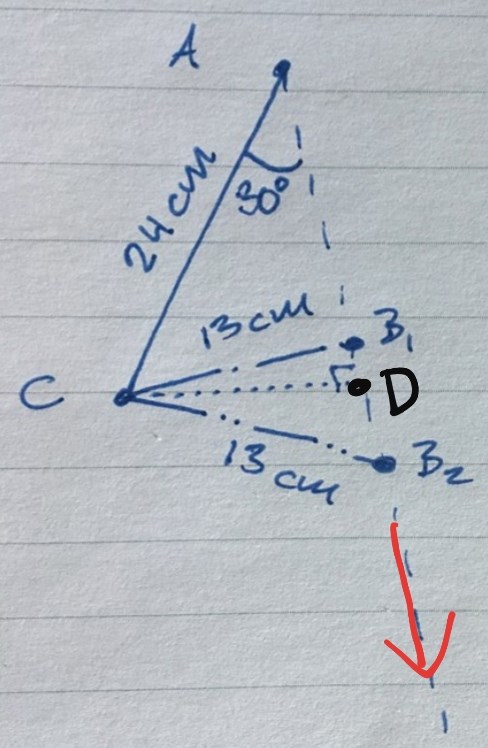 A
24 cm
30°
13 cm
B₁
C
D
13 cm
B₂